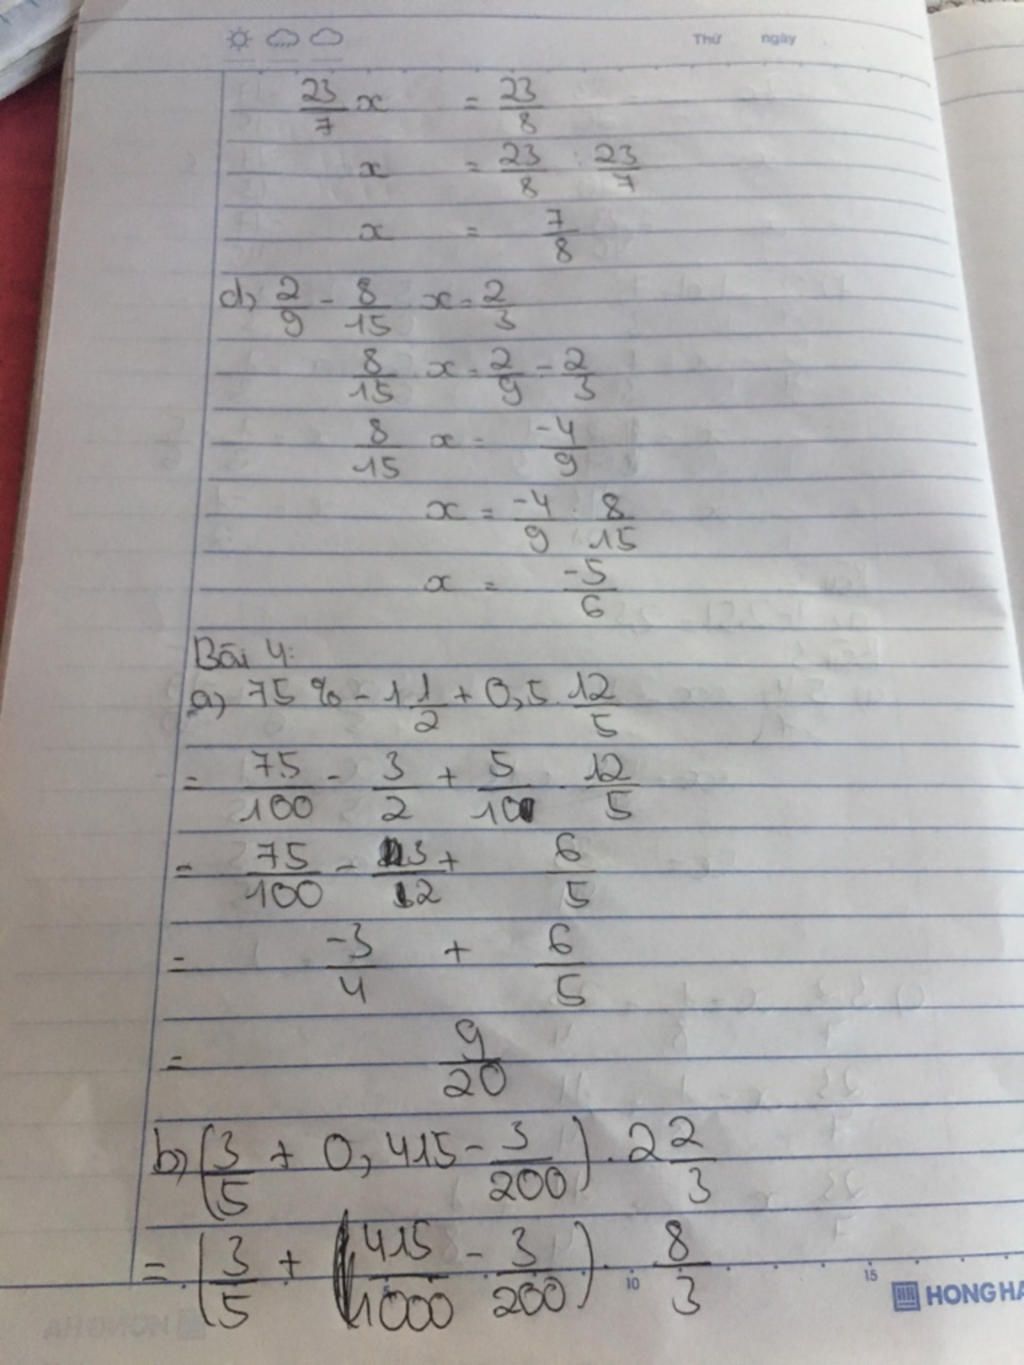 Thứ ngày
23/7 x = 23/8
x = 23/8 : 23/7
x = 7/8
d, 2/9 - 8/15 x = 2/3
8/15 x = 2/9 - 2/3
8/15 x = -4/9
x = -4/9 : 8/15
x = -5/6
Bài 4:
a, 75% - 1 1/2 + 0,5 . 12/5
= 75/100 - 3/2 + 5/10 . 12/5
= 75/100 - 3/2 + 6/5
= -3/4 + 6/5
= 9/20
b, (3/5 + 0,415 - 3/200) . 2 2/3
= (3/5 + 415/1000 - 3/200) . 8/3
10 15
HONG HA